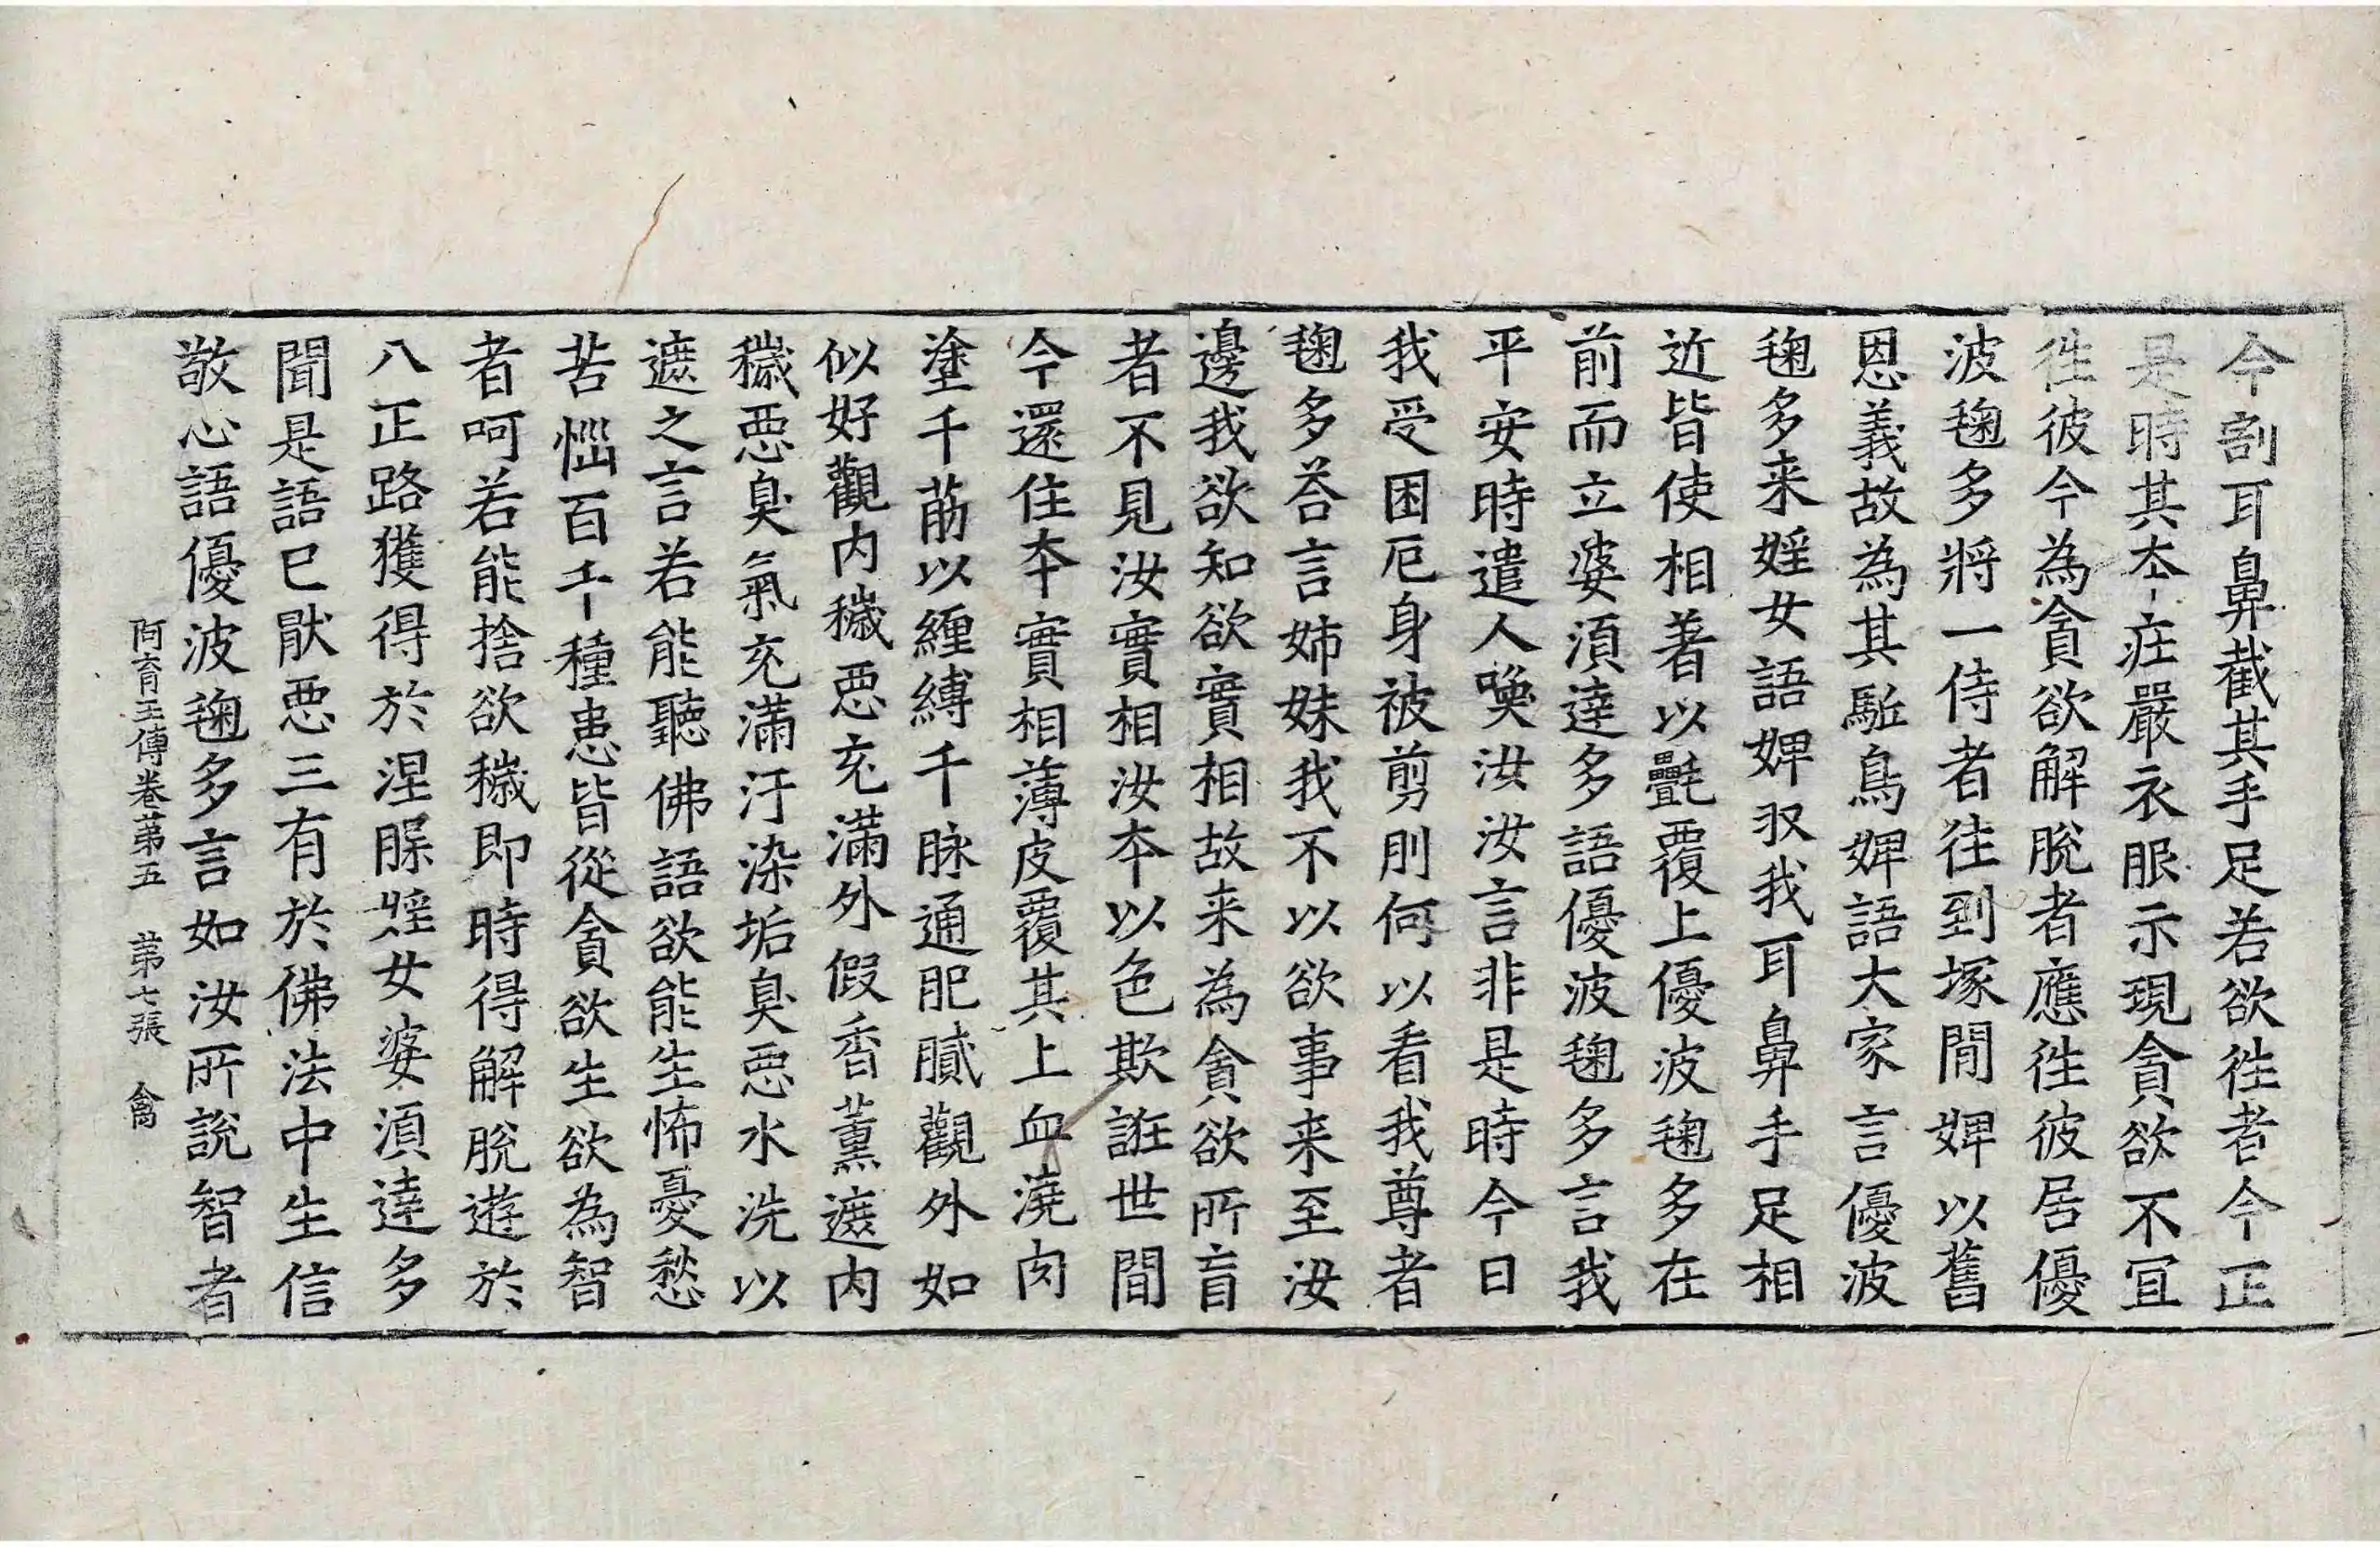 今割耳鼻截其手足若欲徃者今正
是時其夲莊嚴衣服示現貪欲不冝
徃彼今為貪欲解脫者應徃彼居優
波毱多將一侍者往到塚間婢以舊
恩義故為其駈鳥婢語大家言優波
毱多来婬女語婢収我耳鼻手足相
近皆使相著以㲲覆上優波毱多在
前而立婆湏達多語優波毱多言我
平安時遣人喚汝汝言非是時今日
我受困厄身被剪刖何以看我尊者
毱多荅言姉妹我不以欲事来至汝
邊我欲知欲實相故来為貪欲所盲
者不見汝實相汝夲以色欺誑世間
今還住夲實相薄皮覆其上血澆肉
塗千荕以纏縛千脉通肥膩觀外如
似好觀内穢惡充滿外假香薰遮内
穢惡臭氣充滿汙染垢臭惡水洗以
遮之言若能聽佛語欲能生怖憂愁
苦惱百千種患皆從貪欲生欲為智
者呵若能捨欲穢即時得解脫遊於
八正路獲得於涅槃婬女婆湏逹多
聞是語已猒惡三有於佛法中生信
敬心語優波毱多言如汝所說智者
阿育王傳卷苐五　苐七張　禽